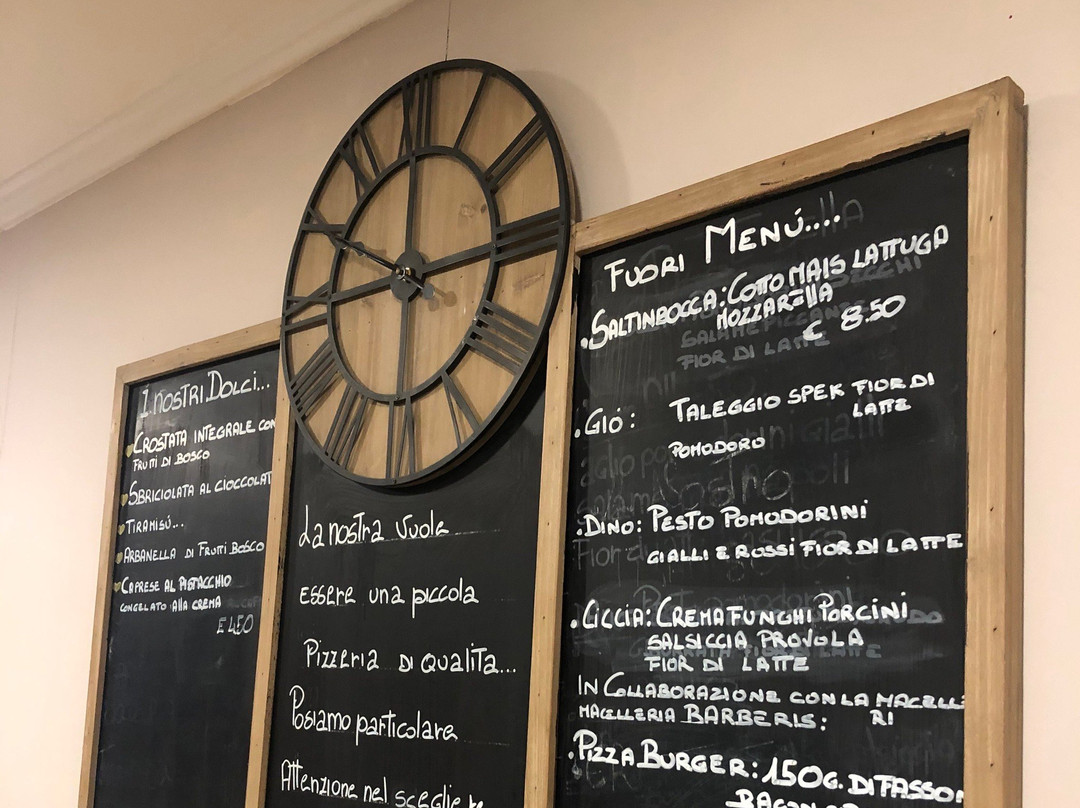 I NOSTRI DOLCI...
CROSTATA INTEGRALE CON
FRUTTI DI BOSCO
SBRICIOLATA AL CIOCCOLAT
TIRAMISÚ...
ARBANELLA DI FRUTTI BOSCO
CAPRESE AL PISTACCHIO
CONGELATO ALLA CREMA
€ 4,50
La nostra vuole
essere una piccola
Pizzeria di qualita...
Posiamo particolare
Attenzione nel scegliere
FUORI MENÚ....
• SALTINBOCCA: COTTO MAIS LATTUGA
MOZZARELLA
€ 8.50
• GIÓ: TALEGGIO SPEK FIOR DI
LATTE
POMODORO
• DINO: PESTO POMODORINI
GIALLI E ROSSI FIOR DI LATTE
• CICCIA: CREMA FUNGHI PORCINI
SALSICCIA PROVOLA
FIOR DI LATTE
IN COLLABORAZIONE CON LA MACELLE
MACELLERIA BARBERIS: RI
• PIZZA BURGER: 150G. DI FASSO